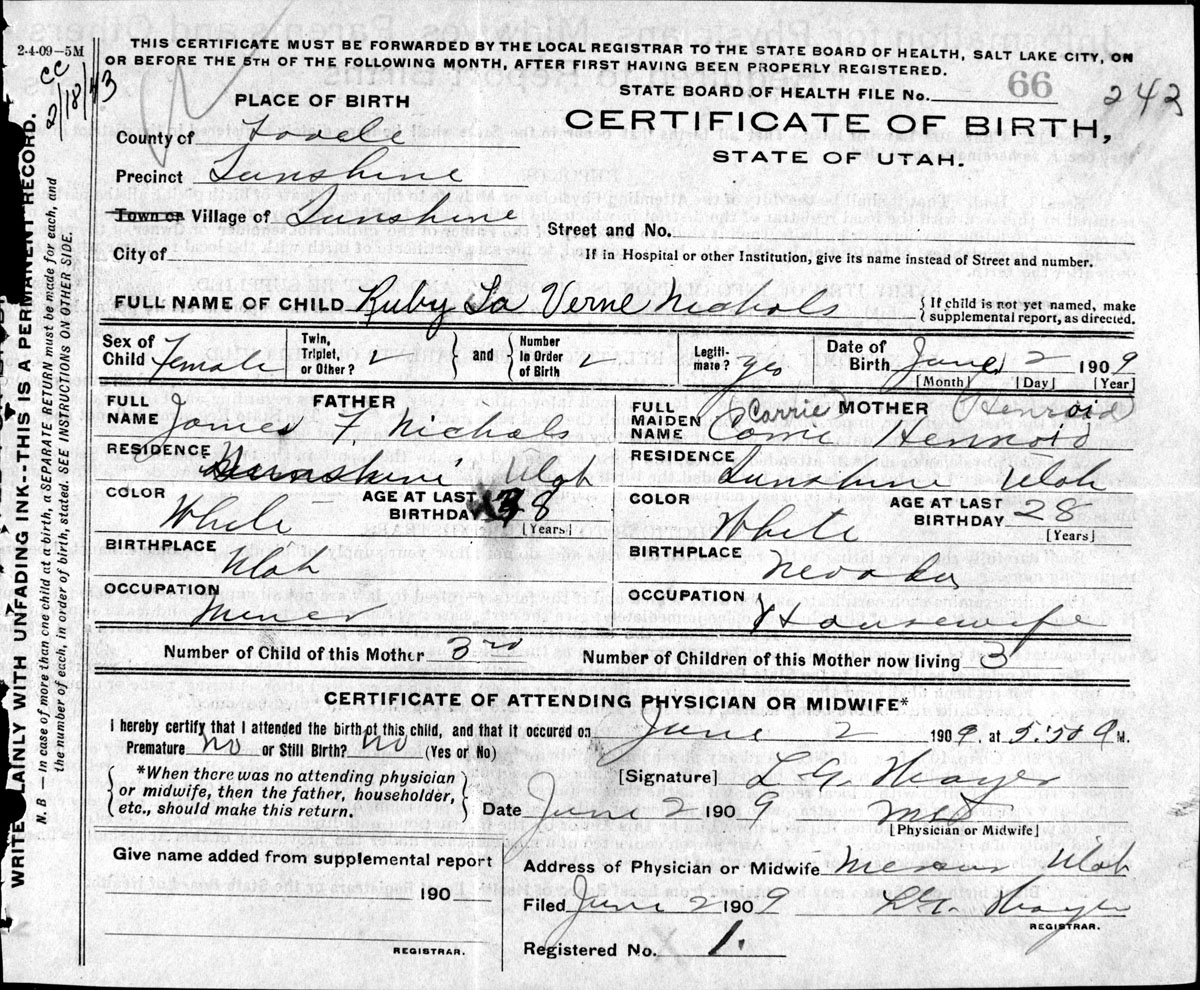 2-4-09—5M
THIS CERTIFICATE MUST BE FORWARDED BY THE LOCAL REGISTRAR TO THE STATE BOARD OF HEALTH, SALT LAKE CITY, ON
OR BEFORE THE 5TH OF THE FOLLOWING MONTH, AFTER FIRST HAVING BEEN PROPERLY REGISTERED.
cc 2/18/43
STATE BOARD OF HEALTH FILE No. 66 242
PLACE OF BIRTH
CERTIFICATE OF BIRTH,
STATE OF UTAH.
County of Tooele
Precinct Sunshine
Town or Village of Sunshine
Street and No.
City of
If in Hospital or other Institution, give its name instead of Street and number.
FULL NAME OF CHILD Ruby La Verne Nichols
{ If child is not yet named, make
supplemental report, as directed.
Sex of Child Female
Twin, Triplet, or Other?
and
Number in Order of Birth
Legiti-mate? yes
Date of Birth June 2 1909
[Month] [Day] [Year]
FATHER
FULL NAME James F. Nichols
RESIDENCE Sunshine Utah
COLOR White
AGE AT LAST BIRTHDAY 38 [Years]
BIRTHPLACE Utah
OCCUPATION Miner
MOTHER
FULL MAIDEN NAME Carrie Henroid
Carrie Henroid
RESIDENCE Sunshine Utah
COLOR White
AGE AT LAST BIRTHDAY 28
[Years]
BIRTHPLACE Nevada
OCCUPATION Housewife
Number of Child of this Mother 3rd Number of Children of this Mother now living 3
CERTIFICATE OF ATTENDING PHYSICIAN OR MIDWIFE*
I hereby certify that I attended the birth of this child, and that it occured on June 2 1909, at 5:50 A M.
Premature No or Still Birth? No (Yes or No)
{ *When there was no attending physician
or midwife, then the father, householder,
etc., should make this return. }
[Signature] L. G.
Date June 2 1909 MD
[Physician or Midwife]
Give name added from supplemental report
190
REGISTRAR.
Address of Physician or Midwife Mercur Utah
Filed June 2 1909 L. G.
REGISTRAR.
Registered No. 1.
WRITE PLAINLY WITH UNFADING INK--THIS IS A PERMANENT RECORD.
N. B.—In case of more than one child at a birth, a SEPARATE RETURN must be made for each, and
the number of each, in order of birth, stated. SEE INSTRUCTIONS ON OTHER SIDE.